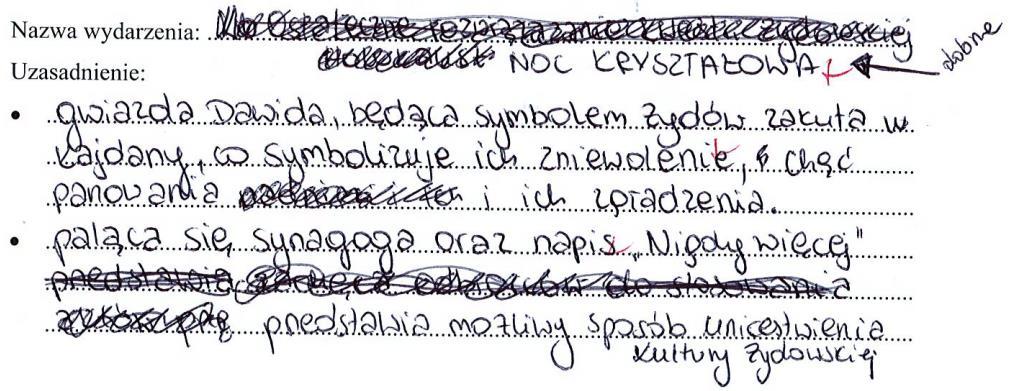 Nazwa wydarzenia:
NOC KRYSZTAŁOWA dobne
Uzasadnienie:
• gwiazda Dawida, będąca symbolem Żydów zakuta w
kajdany, co symbolizuje ich zniewolenie, chęć
panowania i ich
• paląca się synagoga oraz napis „Nigdy więcej"
przedstawia możliwy sposób unicestwienia
kultury żydowskiej